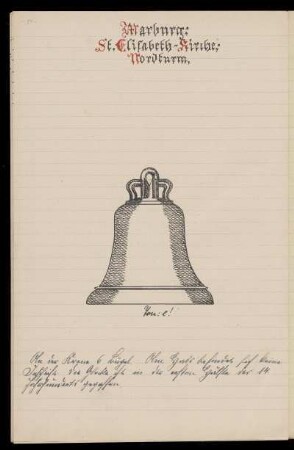 Marburg:
St. Elisabeth-Kirche;
Nordturm.
Ton: e'
An der Krone 6 Bügel. Am Hals befindet sich keine
Inschrift. Die Glocke ist in der ersten Hälfte des 14
Jahrhunderts gegossen.